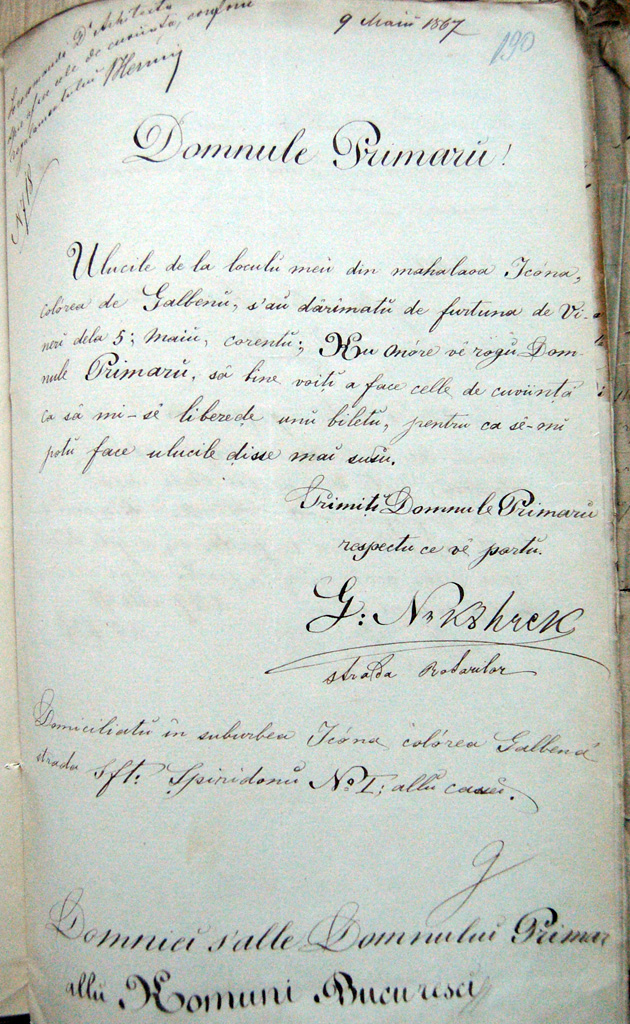 9 Maiu 1867
190
Recomandă D. Arhitectu
de cuviință, conform
regulamentului
N 718
Domnule Primarŭ!
Ulucile de la loculŭ meŭ din mahalaoa Icóna,
colórea de Galbenŭ, s'aŭ dărîmatŭ de furtuna de Vi-
neri dela 5; Maiŭ, corentŭ; More vĕ rogŭ Dom-
nule Primarŭ, să bine voiți a face celle de cuviință
ca să mi-sĕ liberede unŭ biletŭ, pentru ca sĕ-mi
potŭ face ulucile disse mai susŭ.
Trimiți Domnule Primarŭ
respectu ce vĕ portu.
strada Rotarilor
Domiciliatŭ în suburbea Icóna colórea Galbenă
strada Sft: Spiridonŭ No I; allŭ casei.
Domniei s'alle Domnului Primar
allŭ Komuni Bucuresci